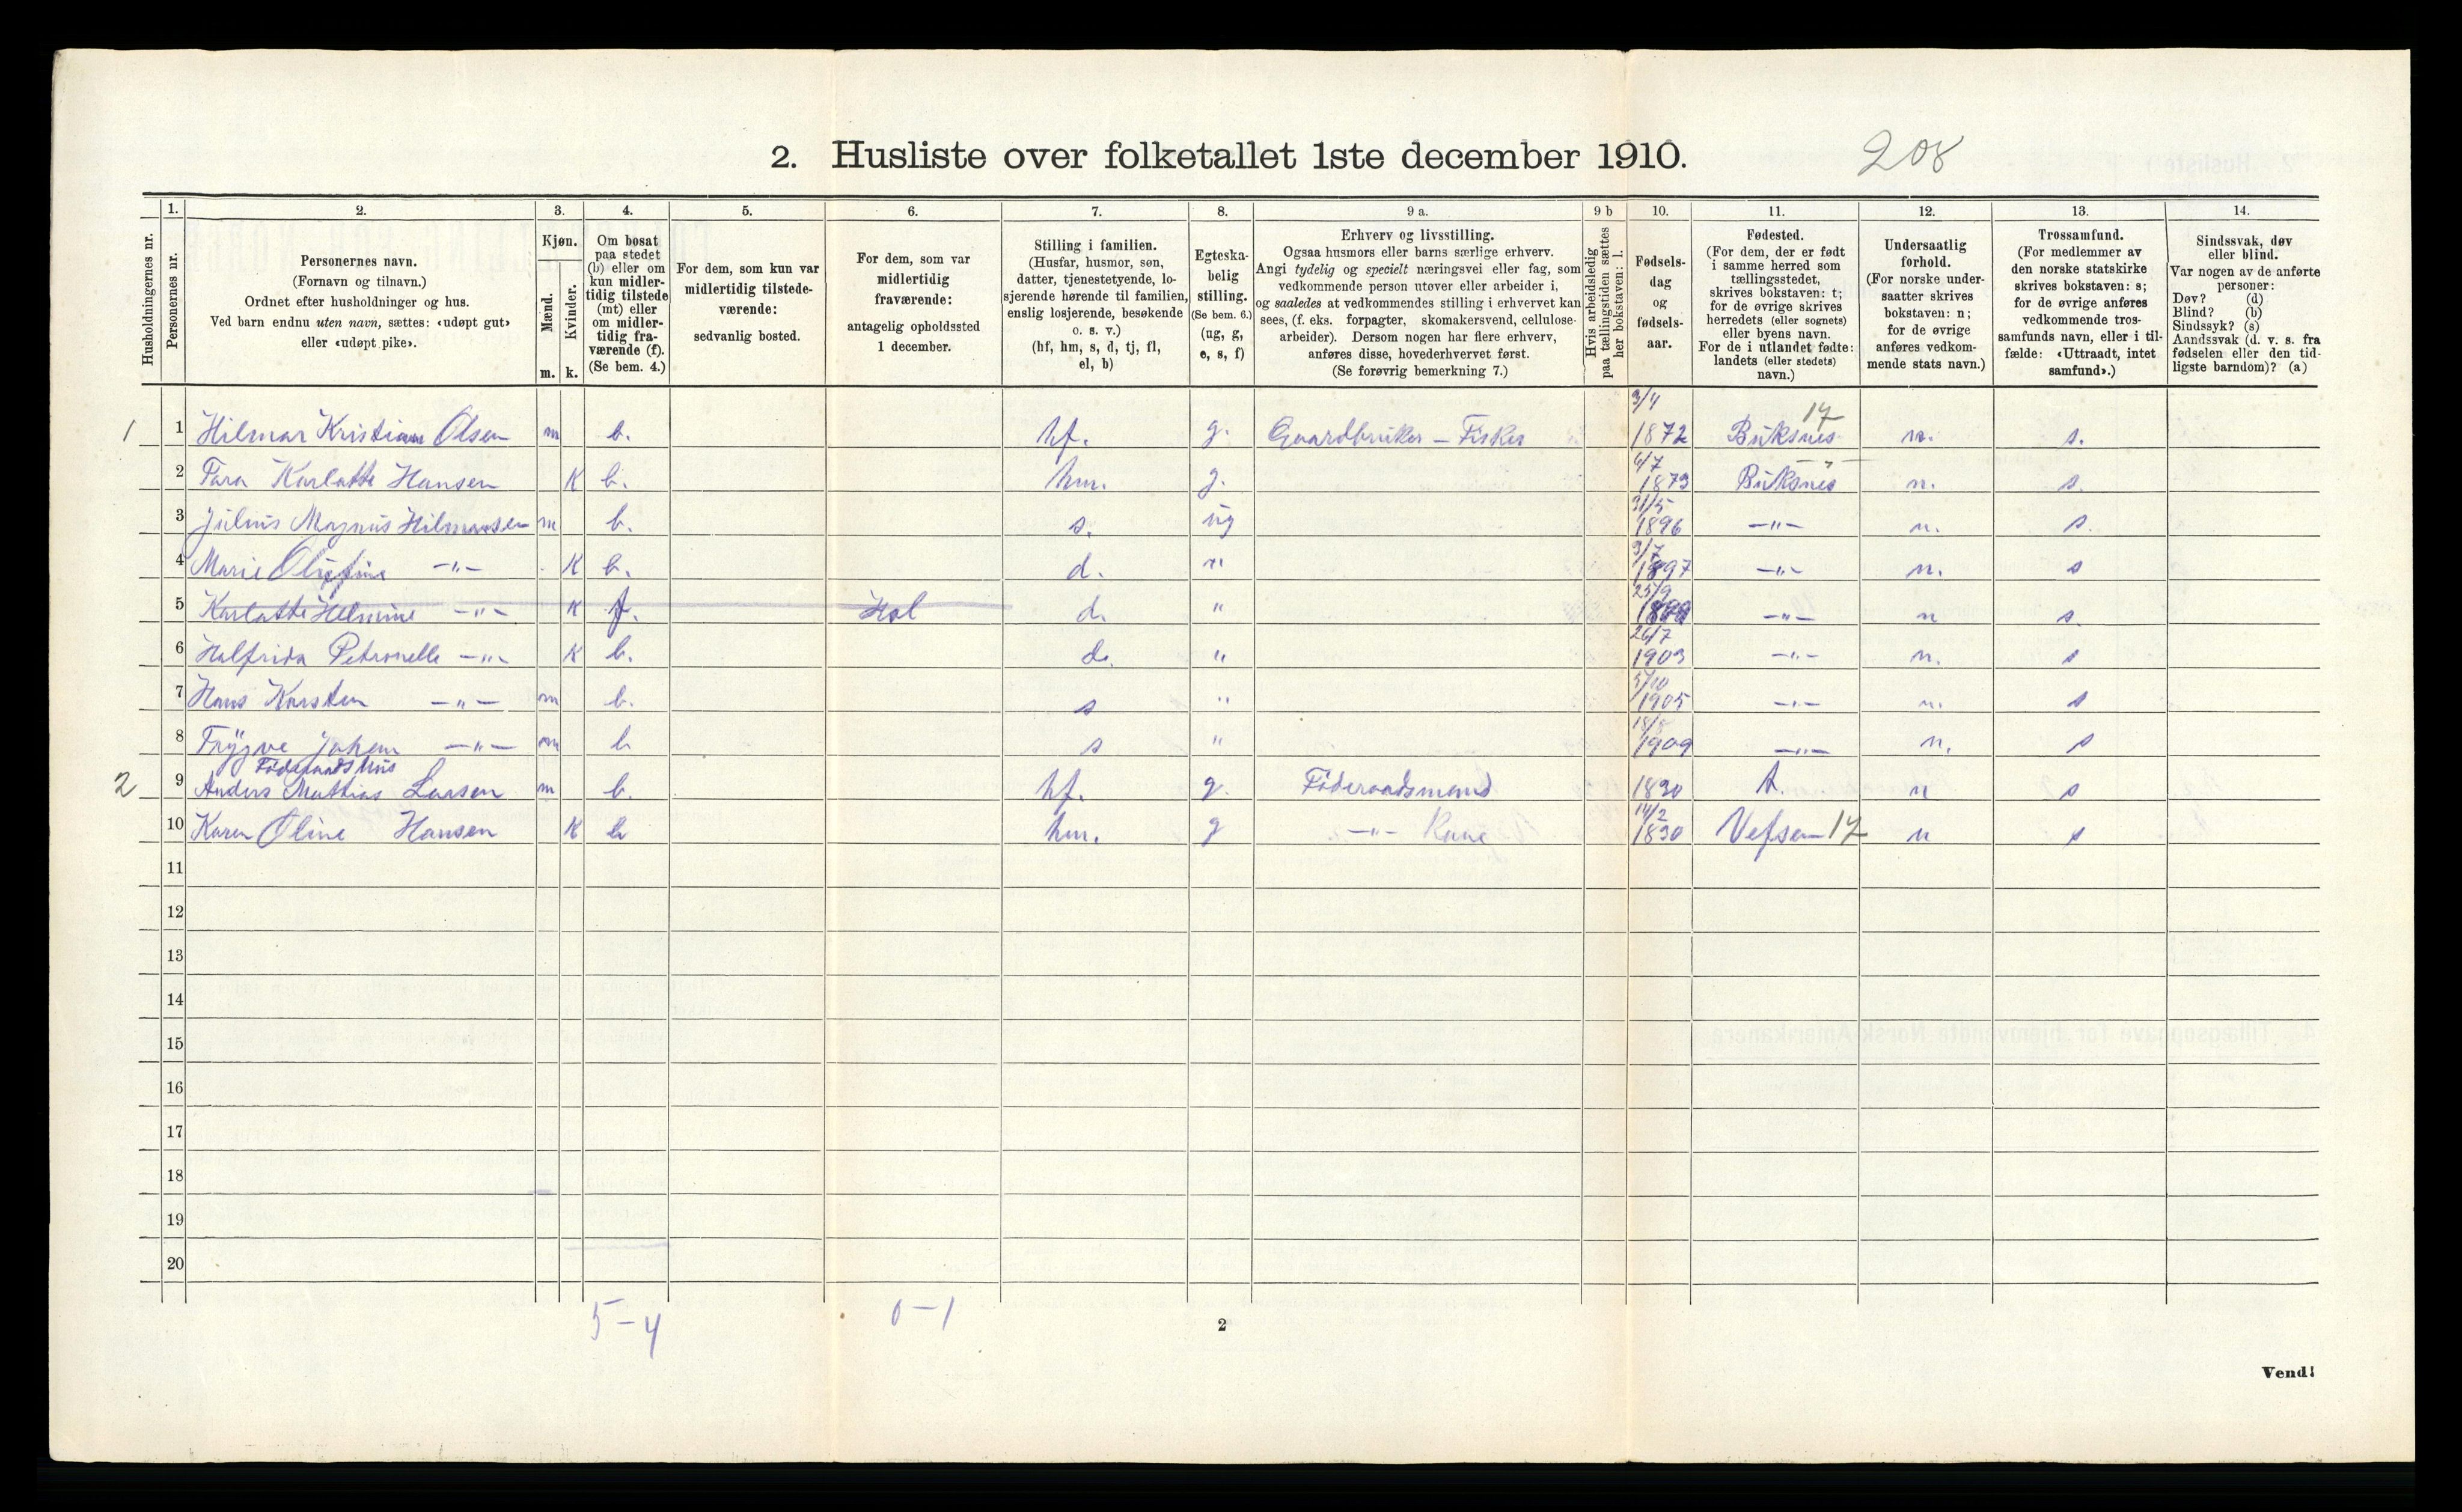 2. Husliste over folketallet 1ste december 1910.
208
Husholdningernes nr.
1. Personernes nr.
2. Personernes navn.
(Fornavn og tilnavn.)
Ordnet efter husholdninger og hus.
Ved barn endnu uten navn, sættes: «udøpt gut»
eller «udøpt pike».
3. Kjøn.
Mænd. m.
Kvinder. k.
4. Om bosat
paa stedet
(b) eller om
kun midler-
tidig tilstede
(mt) eller
om midler-
tidig fra-
værende (f).
(Se bem. 4.)
5. For dem, som kun var
midlertidig tilstede-
værende:
sedvanlig bosted.
6. For dem, som var
midlertidig
fraværende:
antagelig opholdssted
1 december.
7. Stilling i familien.
(Husfar, husmor, søn,
datter, tjenestetyende, lo-
sjerende hørende til familien,
enslig losjerende, besøkende
o. s. v.)
(hf, hm, s, d, tj, fl,
el, b)
8. Egteska-
belig
stilling.
(Se bem. 6.)
(ug, g,
e, s, f)
9 a. Erhverv og livsstilling.
Ogsaa husmors eller barns særlige erhverv.
Angi tydelig og specielt næringsvei eller fag, som
vedkommende person utøver eller arbeider i,
og saaledes at vedkommendes stilling i erhvervet kan
sees, (f. eks. forpagter, skomakersvend, cellulose-
arbeider). Dersom nogen har flere erhverv,
anføres disse, hovederhvervet først.
(Se forøvrig bemerkning 7.)
9 b Hvis arbeidsledig
paa tællingstiden sættes
her bokstaven: l.
10. Fødsels-
dag
og
fødsels-
aar.
11. Fødested.
(For dem, der er født
i samme herred som
tællingsstedet,
skrives bokstaven: t;
for de øvrige skrives
herredets (eller sognets)
eller byens navn.
For de i utlandet fødte:
landets (eller stedets)
navn.)
12. Undersaatlig
forhold.
(For norske under-
saatter skrives
bokstaven: n;
for de øvrige
anføres vedkom-
mende stats navn.)
13. Trossamfund.
(For medlemmer av
den norske statskirke
skrives bokstaven: s;
for de øvrige anføres
vedkommende tros-
samfunds navn, eller i til-
fælde: «Uttraadt, intet
samfund».)
14. Sindssvak, døv
eller blind.
Var nogen av de anførte
personer:
Døv? (d)
Blind? (b)
Sindssyk? (s)
Aandssvak (d. v. s. fra
fødselen eller den tid-
ligste barndom)? (a)
1 1 Hilmar Kristian Olsen m b. hf. g. Gaardbruker – Fisker 3/4 1872 Buksnes 17 n. s.
2 Tara Karlotte Hansen K b. hm. g. 6/7 1873 Buksnes n. s.
3 Julius Magnus Hilmarsen m b. s. ug 31/5 1896 –"– n. s.
4 Marie –"– K b. d. " 3/7 1897 –"– n. s
5 Karlotte Helmine –"– K f. Hol d. " 25/9 –"– n s.
6 Halfrida Petronelle –"– K b. d. " 26/7 1903 –"– n. s
7 Hans Karsten –"– m b. s " 5/10 1905 –"– n. s
8 Trygve Johan –"– m b s " 1909 –"– n. s
Föderaadshus
2 9 Anders Mathias Larsen m b. hf. g. Föderaadsmand 1830 t. n s
10 Karen Oline Hansen K b hm. g –"– Kone 14/2 1830 Vefsen 17 n s
11
12
13
14
15
16
17
18
19
20
5–4
0–1
2
Vend!